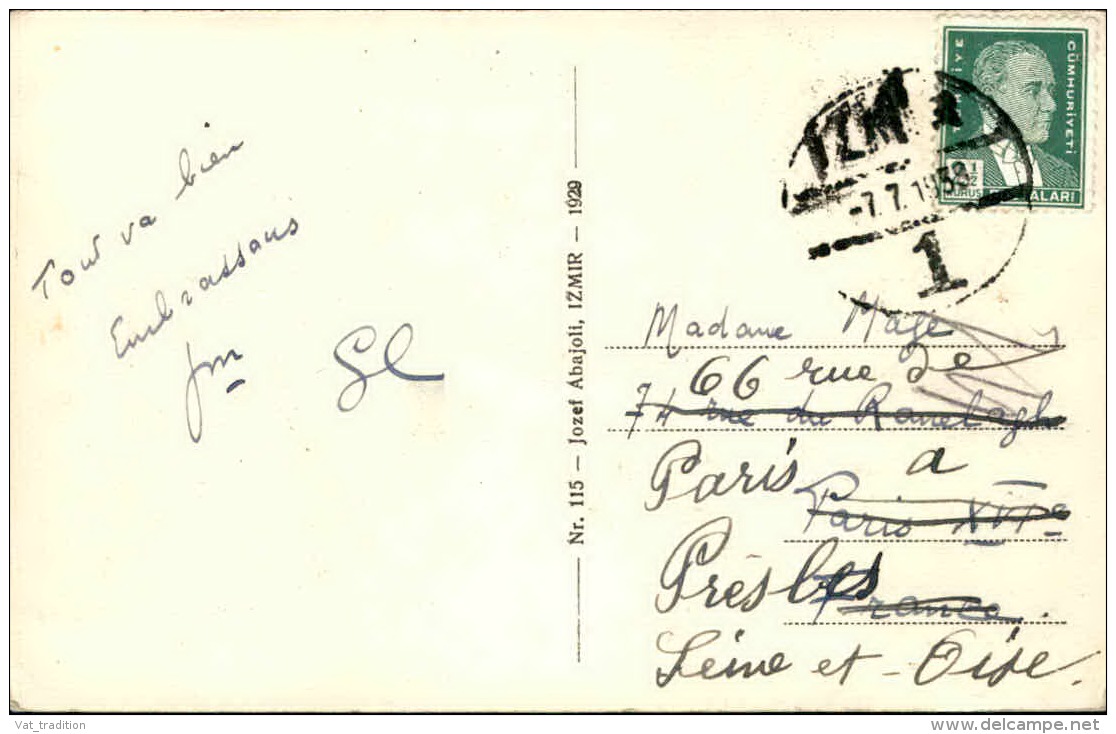 Tout va bien
Embrassons
Jm Gl
Nr. 115 — Jozef Abajoli, IZMIR — 1929
TÜRKİYE CÜMHURİYETİ
POSTALARI
IZMİR
-7.7.1938
1
Madame Mage
66 rue de
74 rue du Ranelagh
Paris a
Paris XVIe
Presles
France.
Seine et-Oise.
Vat_tradition
www.delcampe.net